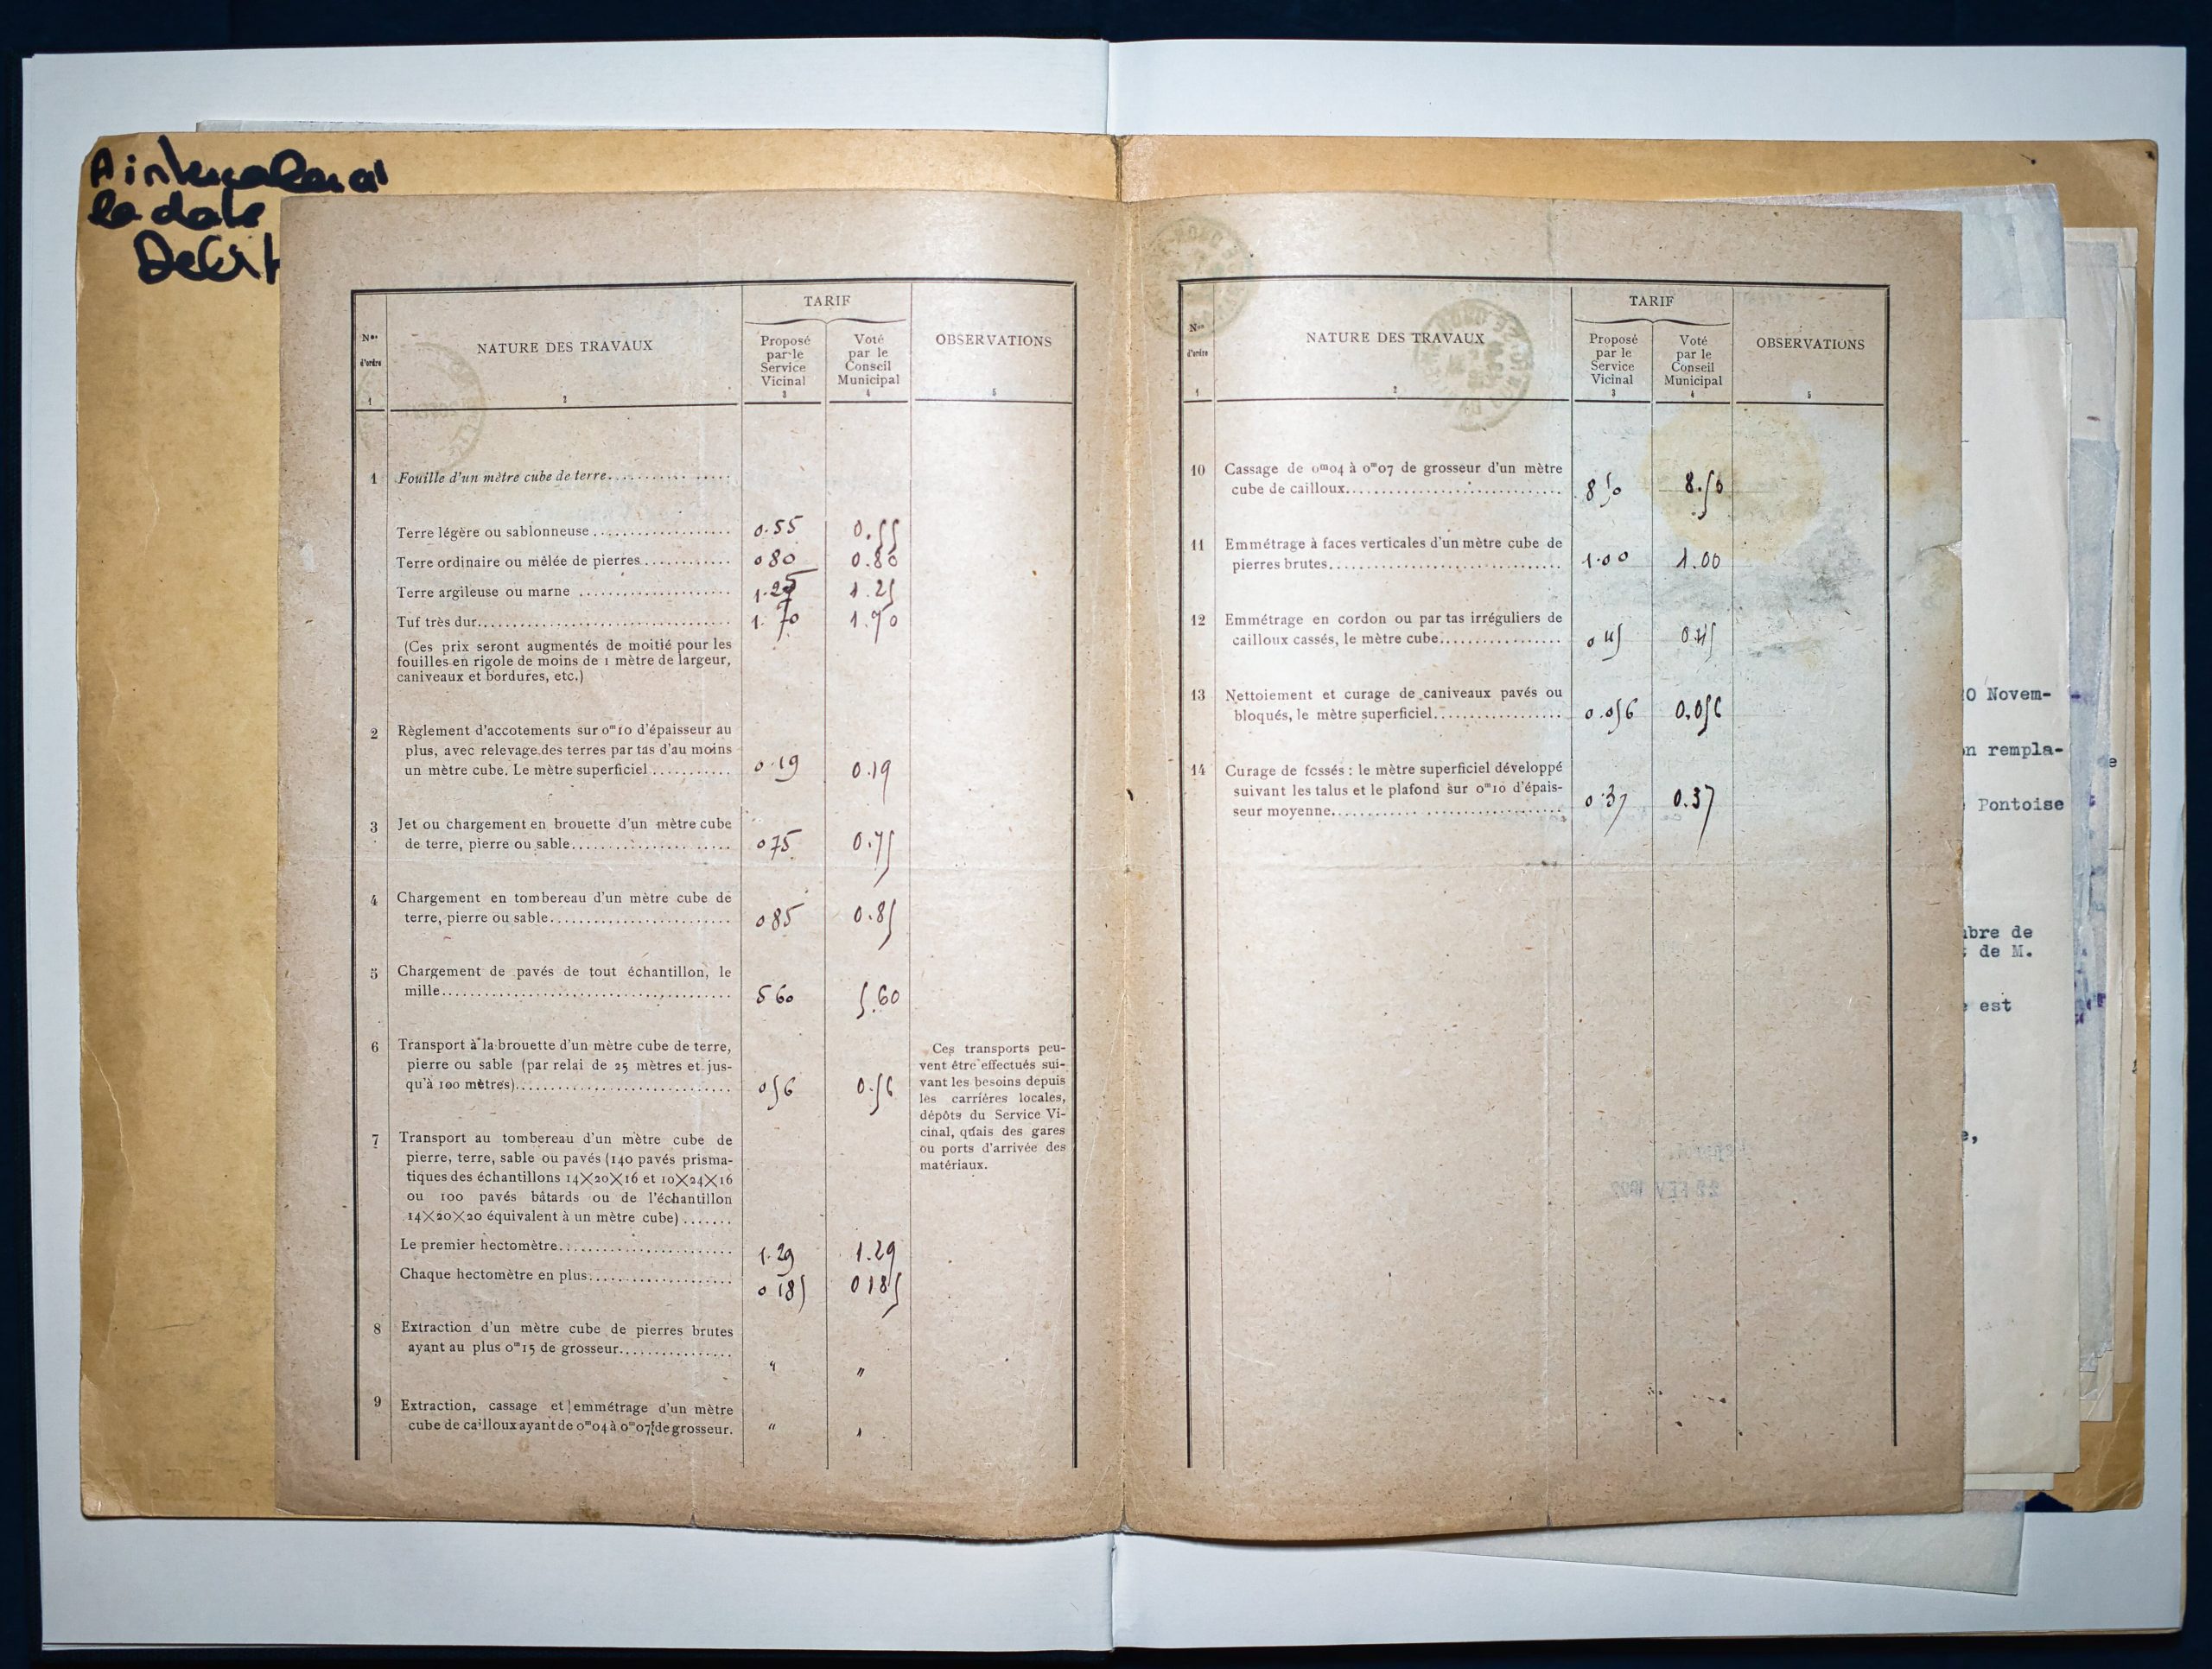 la date
Nos
d'ordre
1
NATURE DES TRAVAUX
2
TARIF
Proposé
par le
Service
Vicinal
3
Voté
par le
Conseil
Municipal
4
OBSERVATIONS
5
1 Fouille d'un mètre cube de terre
Terre légère ou sablonneuse 0.55 0.55
Terre ordinaire ou mêlée de pierres 0 80 0.80
Terre argileuse ou marne 1.25 1.25
Tuf très dur 1.70 1.70
(Ces prix seront augmentés de moitié pour les
fouilles en rigole de moins de 1 mètre de largeur,
caniveaux et bordures, etc.)
2 Règlement d'accotements sur 0m10 d'épaisseur au
plus, avec relevage des terres par tas d'au moins
un mètre cube. Le mètre superficiel 0.19 0.19
3 Jet ou chargement en brouette d'un mètre cube
de terre, pierre ou sable 0 75 0.75
4 Chargement en tombereau d'un mètre cube de
terre, pierre ou sable 0 85 0.85
5 Chargement de pavés de tout échantillon, le
mille 5 60 5.60
6 Transport à la brouette d'un mètre cube de terre,
pierre ou sable (par relai de 25 mètres et jus-
qu'à 100 mètres) 0 56 0.56
7 Transport au tombereau d'un mètre cube de
pierre, terre, sable ou pavés (140 pavés prisma-
tiques des échantillons 14×20×16 et 10×24×16
ou 100 pavés bâtards ou de l'échantillon
14×20×20 équivalent à un mètre cube)
Le premier hectomètre 1.29 1.29
Chaque hectomètre en plus 0 185 0 185
8 Extraction d'un mètre cube de pierres brutes
ayant au plus 0m15 de grosseur " "
9 Extraction, cassage et emmétrage d'un mètre
cube de cailloux ayant de 0m04 à 0m07 de grosseur. "
Ces transports peu-
vent être effectués sui-
vant les besoins depuis
les carrières locales,
dépôts du Service Vi-
cinal, quais des gares
ou ports d'arrivée des
matériaux.
Nos
d'ordre
1
NATURE DES TRAVAUX
2
TARIF
Proposé
par le
Service
Vicinal
3
Voté
par le
Conseil
Municipal
4
OBSERVATIONS
5
10 Cassage de 0m04 à 0m07 de grosseur d'un mètre
cube de cailloux 8 50 8.50
11 Emmétrage à faces verticales d'un mètre cube de
pierres brutes 1.00 1.00
12 Emmétrage en cordon ou par tas irréguliers de
cailloux cassés, le mètre cube 0 45 0.45
13 Nettoiement et curage de caniveaux pavés ou
bloqués, le mètre superficiel 0.056 0.056
14 Curage de fossés : le mètre superficiel développé
suivant les talus et le plafond sur 0m10 d'épais-
seur moyenne 0.37 0.37
0 Novem-
n rempla-
Pontoise
bre de
de M.
est
de